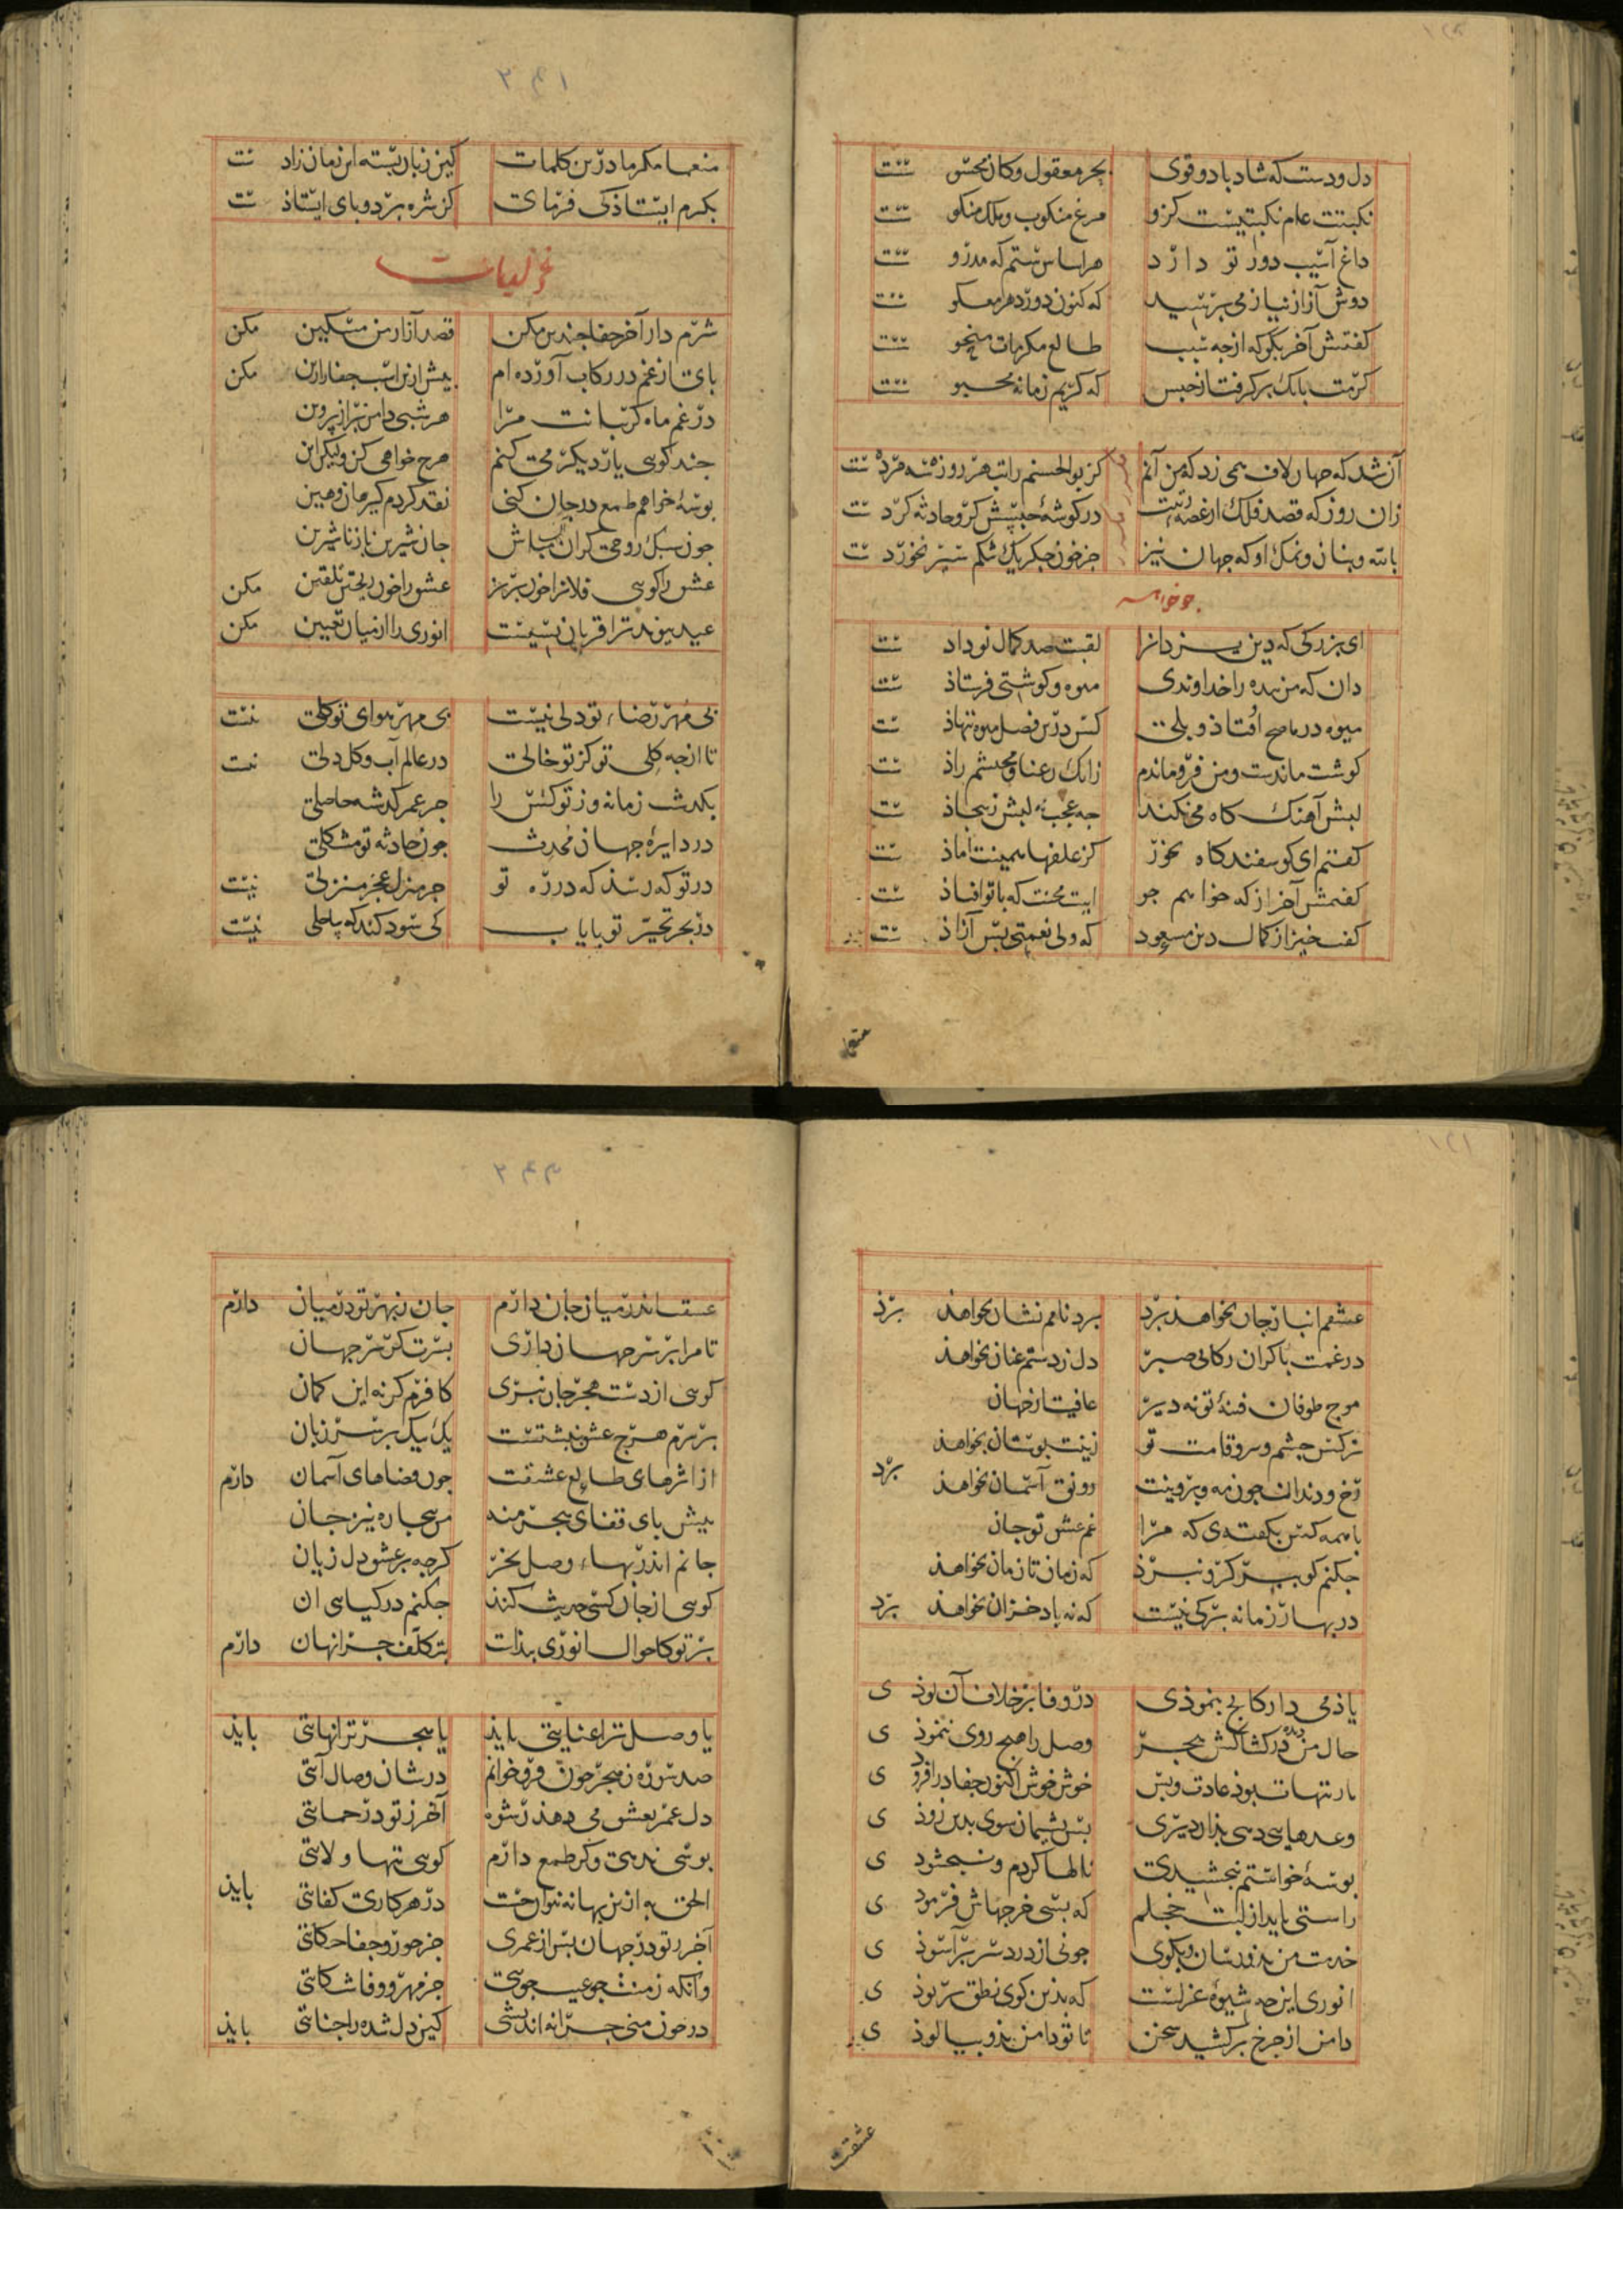 دل و دست که شاد باد و قوی بحر معقول و کان محسوست
نکبتت عام نکبتیست کزو مرغ منکوب و ملک منکوست
داغ آسیب دور تو دارد هر اساس ستم که مدروست
دوش آزاز نیاز می برسید که کنون دور دهر معکوست
کفتمش آخر بکو که از جه سبب طالع مکرمات منحوست
کرمت بانک بر کرفت از حبس که کریم زمانه محبوست
آن شد که جهان لاف همی زد که من آنم کز بوالحسنم راتب هر روزه
زان روز که قصد فلک از غصه در کوشهٔ حبسش کرو حادثه کرد
بالله و بنان و نمک او که جهان نیز جز خون جکر یک شکم سیر نخورد
ای بزرکی که دین یزدانرا لقبت صد کمال نو داد
دان که من بنده را خداوندی میوه و کوشتی فرستاذ
میوه در ماضح افتاذ و بلخ کس درین فصل میوه ننهاذ
کوشت ماندست و من فرو ماندم زانک رعنا و محتشم زاذ
لبش آهنک کاه می نکند جه عجب نه لبش ز سجاذ
کفتم ای کوسفند کاه بخور کز علفها همینت اماذ
کفتمش آخر از که خواهم جو اینت محنت که با تو افتاذ
کفت خیز از کمال دین مسعود که ولی نعمتی بس آزاذ
منعما
۲۴۱
منعما مکرما درین کلمات کین زبان بسته این زمان زاد
بکرم ایستاذکی فرمای کز شره بر دو بای ایستاذ
غزلیات
شرم دار آخر جفا جندین مکن قصد آزار من مسکین مکن
بای تا از غم در رکاب آورده ام بیش ازین اسب جفا را زین مکن
در غم ماه کریبانت مرا هر شبی دامن بر از بروین
جند کویی یار دیکر می کنم هرج خواهی کن ولیکن این
بوسهٔ خواهم طمع در جان کنی نقد کردم کیر همان و هین
جون سبک روحی کران مباش جان شیرین ناز نا شیرین
عشق را کویی فلانرا خون بریز عشق را خون ریختن تلقین مکن
عید بیوند ترا قربان بسیست انوری را از میان تعیین مکن
بی مهر رضاء تو دلی نیست بی مهر هوای تو کلی نیست
تا از جه کلی تو کز تو خالی در عالم آب و کل دلی نیست
بکدشت زمانه و ز تو کس را جز عمر کدشته حاصلی
در دایرهٔ جهان محدث جون حادثه تو مشکلی
در تو که رسد که در ره تو جز منزل عجز منزلی نیست
در بحر تحیر تو بایاب کی سود کند که ساحلی نیست
عشقم انبار جان بخواهد برد برد نامم نشان بخواهذ برذ
در غمت با کران رکابی صبر دل ز دستم عنان بخواهذ
موج طوفان فتنهٔ تو نه دیر عافیت از جهان
نرکس جشم و سرو قامت تو زینت بوستان بخواهذ
رخ و دندان جون مه و بروینت رونق آسمان بخواهذ برد
با همه کس بکفته ی که مرا غم عشق تو جان
جکنم کو ببر کر و نبرذ که زمان تا زمان بخواهذ
در بهار زمانه برکی نیست که نه باد خزان بخواهذ برذ
یاذ می دار کانج بنموذی در وفا بر خلاف آن بوذی
حال من دیده در کشاکش هجر وصل را هیج روی ننموذی
بارتنهات بوذ عادت و بس خوش خوش اکنون جفا در افزوذی
وعدهایی دهی بذان دیری بس بشیمان شوی بدین زوذی
بوسهٔ خواستم نبخشیدی نالها کردم و نبخشودی
راستی باید از لبت خجلم که بسی خرجهاش فرمودی
خدمت من بذو رسان و بکوی جونی از درد سر بر آسوذی
انوری این جه شیوهٔ غزلست که بدین کوی نطق بربوذی
دامن از جرخ بر کشید سخن تا تو دامن بذو بیالوذی
عشقت
۲۴۳
عشقت اندر میان جان دارم جان ز بهر تو در میان دارم
تا مرا بر سر جهان داری بسرت کر سر جهان
کویی از دست هجر جان نبری کافرم کر نه این کمان
بر سرم هرج عشق بنبشتست یک بیک بر سر زبان
از اثرهای طالع عشقت جون قضاهای آسمان دارم
بیش بای قفای هجر منه من بیجاره نیز جان
جانم اندر بهاء وصل بخر کرجه بر عشق دل زیان
کویی از جان کسی حدیث کند جکنم در کیایی ان
بر تو کاحوال انوری بذات بتکلف جرا نهان دارم
یا وصل ترا عنایتی بایذ یا هجر ترا نهایتی بایذ
صد سوره ز هجر جون فرو خوانم در شان وصال آیتی
دل عمر بعشق می دهذ رشوه آخر ز تو در حمایتی
بوسی ندهی و کر طمع دارم کویی تنها ولایتی
الحق به ازین بهانه نتوان جست در هر کاری کفایتی بایذ
آخر ز تو در جهان بس از عمری جز جور و جفا حکایتی
وانکه ز منت جو عیب جویی جز مهر و وفا شکایتی
در خون منی جرا نه اندیشی کین دل شده را جنایتی بایذ